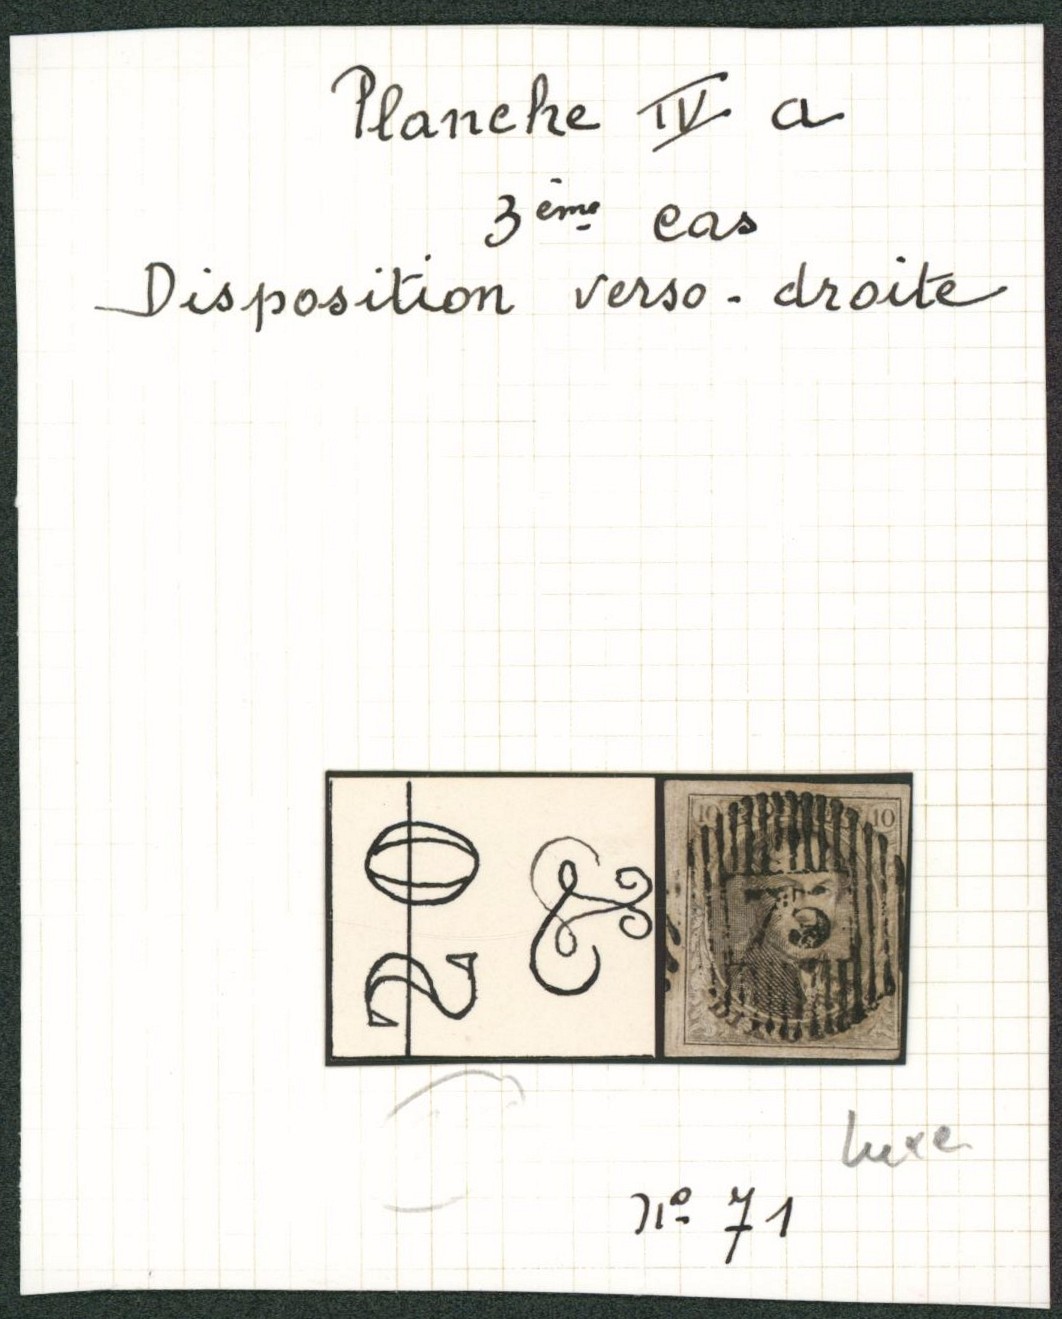 Planche IV a
3ème cas
Disposition verso-droite
20
10 10
73
luxe
no 71